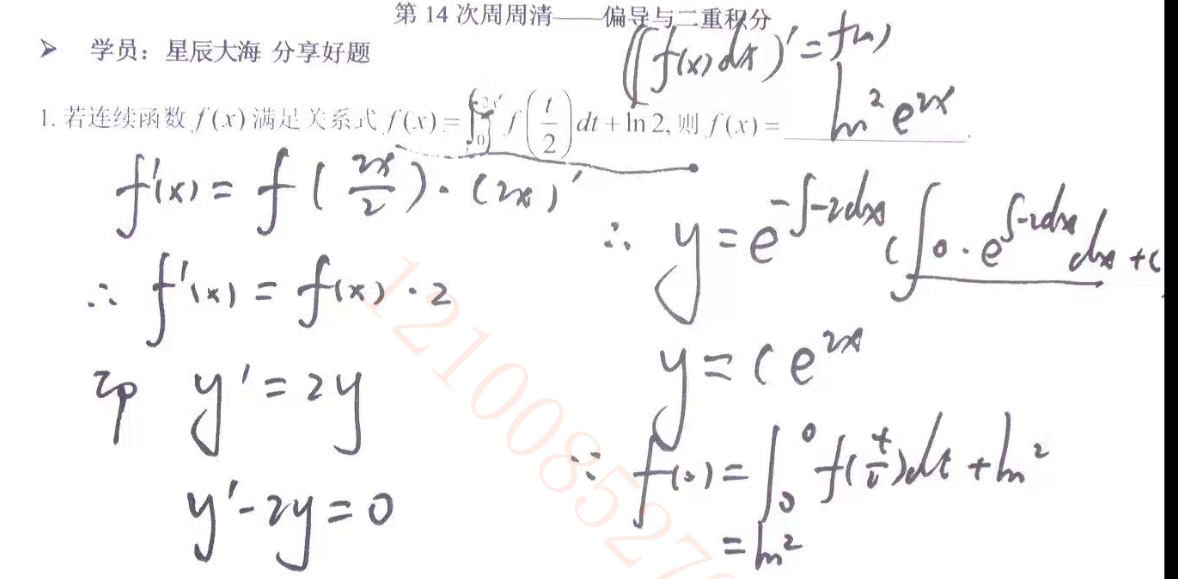 第 14 次周周清——偏导与二重积分
➤ 学员：星辰大海 分享好题
(∫f(x)dx)′=f(x)
1. 若连续函数 f(x) 满足关系式 f(x)=∫₀²ˣ f(t/2)dt+ln2, 则 f(x)= ln2 e²ˣ.
f′(x)=f(2x/2)·(2x)′
∴ f′(x)=f(x)·2
即 y′=2y
y′-2y=0
∴ y=e^(-∫-2dx)(∫0·e^(∫-2dx)dx+C
y=Ce²ˣ
∵ f(0)=∫₀⁰f(t/2)dt+ln2
=ln2
12100852